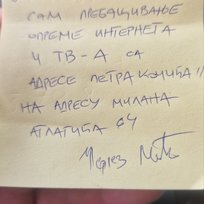 САМ ПРЕБАЦИВАЊЕ
ОПРЕМЕ ИНТЕРНЕТА
И ТВ-А СА
АДРЕСЕ ПЕТРА КОЧИЋА 11
НА АДРЕСУ МИЛАНА
64